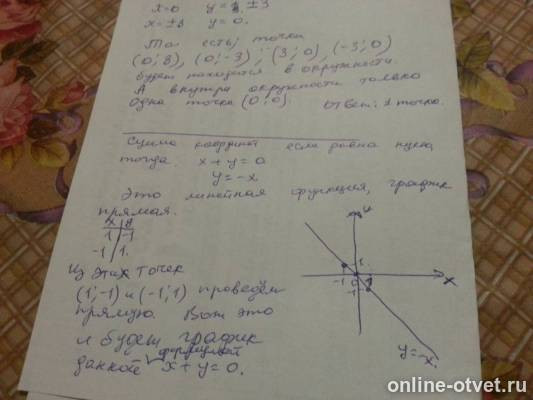 x=0 y=±3
x=±3 y=0.
То есть, точки
(0;3), (0;-3), (3;0), (-3;0)
будет находится в окружности.
А внутри окружности только
одна точка (0;0). Ответ: 1 точка.
Сумма координат если равна нулю,
тогда x+y=0
y=-x.
Это линейная функция, график
прямая.
x y
1 -1
-1 1.
Из этих точек
(1;-1) и (-1;1) проведём
прямую. Вот это
и будет график
данной функцией x+y=0.
y
1
-1 0 1 x
-1
y=-x.
online-otvet.ru